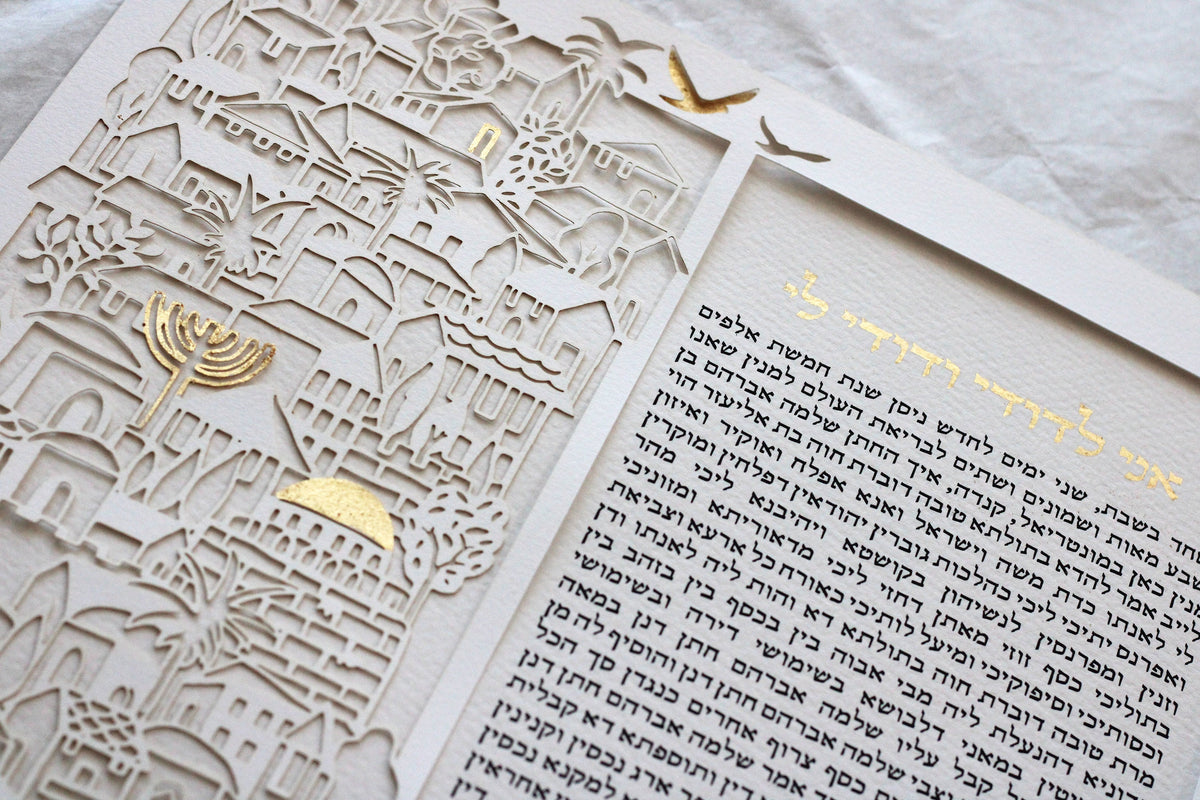 אני לדודי ודודי לי
בשבת, שני ימים לחדש ניסן שנת חמשת אלפים
שבע מאות ושמונים ושתים לבריאת העולם למנין שאנו
מנין כאן במונטריאל, קנדה, איך החתן שלמה אברהם בן
לייב אמר להדא בתולתא טובה דוברת חוה בת אליעזר הוי
לי לאנתו כדת משה וישראל ואנא אפלח ואוקיר ואיזון
ואפרנס יתיכי ליכי כהלכות גוברין יהודאין דפלחין ומוקרין
וזנין ומפרנסין לנשיהון בקושטא ויהיבנא ליכי מהר
בתוליכי כסף זוזי מאתן דחזי ליכי מדאוריתא ומזוניכי
וכסותיכי וסיפוקיכי ומיעל לותיכי כאורח כל ארעא וצביאת
מרת טובה דוברת חוה בתולתא דא והות ליה לאנתו ודן
דהנעלת ליה מבי אבוה בין בכסף בין בזהב בין
במאני דלבושא בשימושי דירה ובשימושי
קבל עליו שלמה אברהם חתן דנן במאה
וצבי שלמה אברהם חתן דנן והוסיף לה מן
כסף צרוף אחרים כנגדן סך הכל
אמר שלמה אברהם חתן דנן
דין ותוספתא דא קבלית
ארג נכסין וקנינין
למקנא נכסין
אחראין
דין